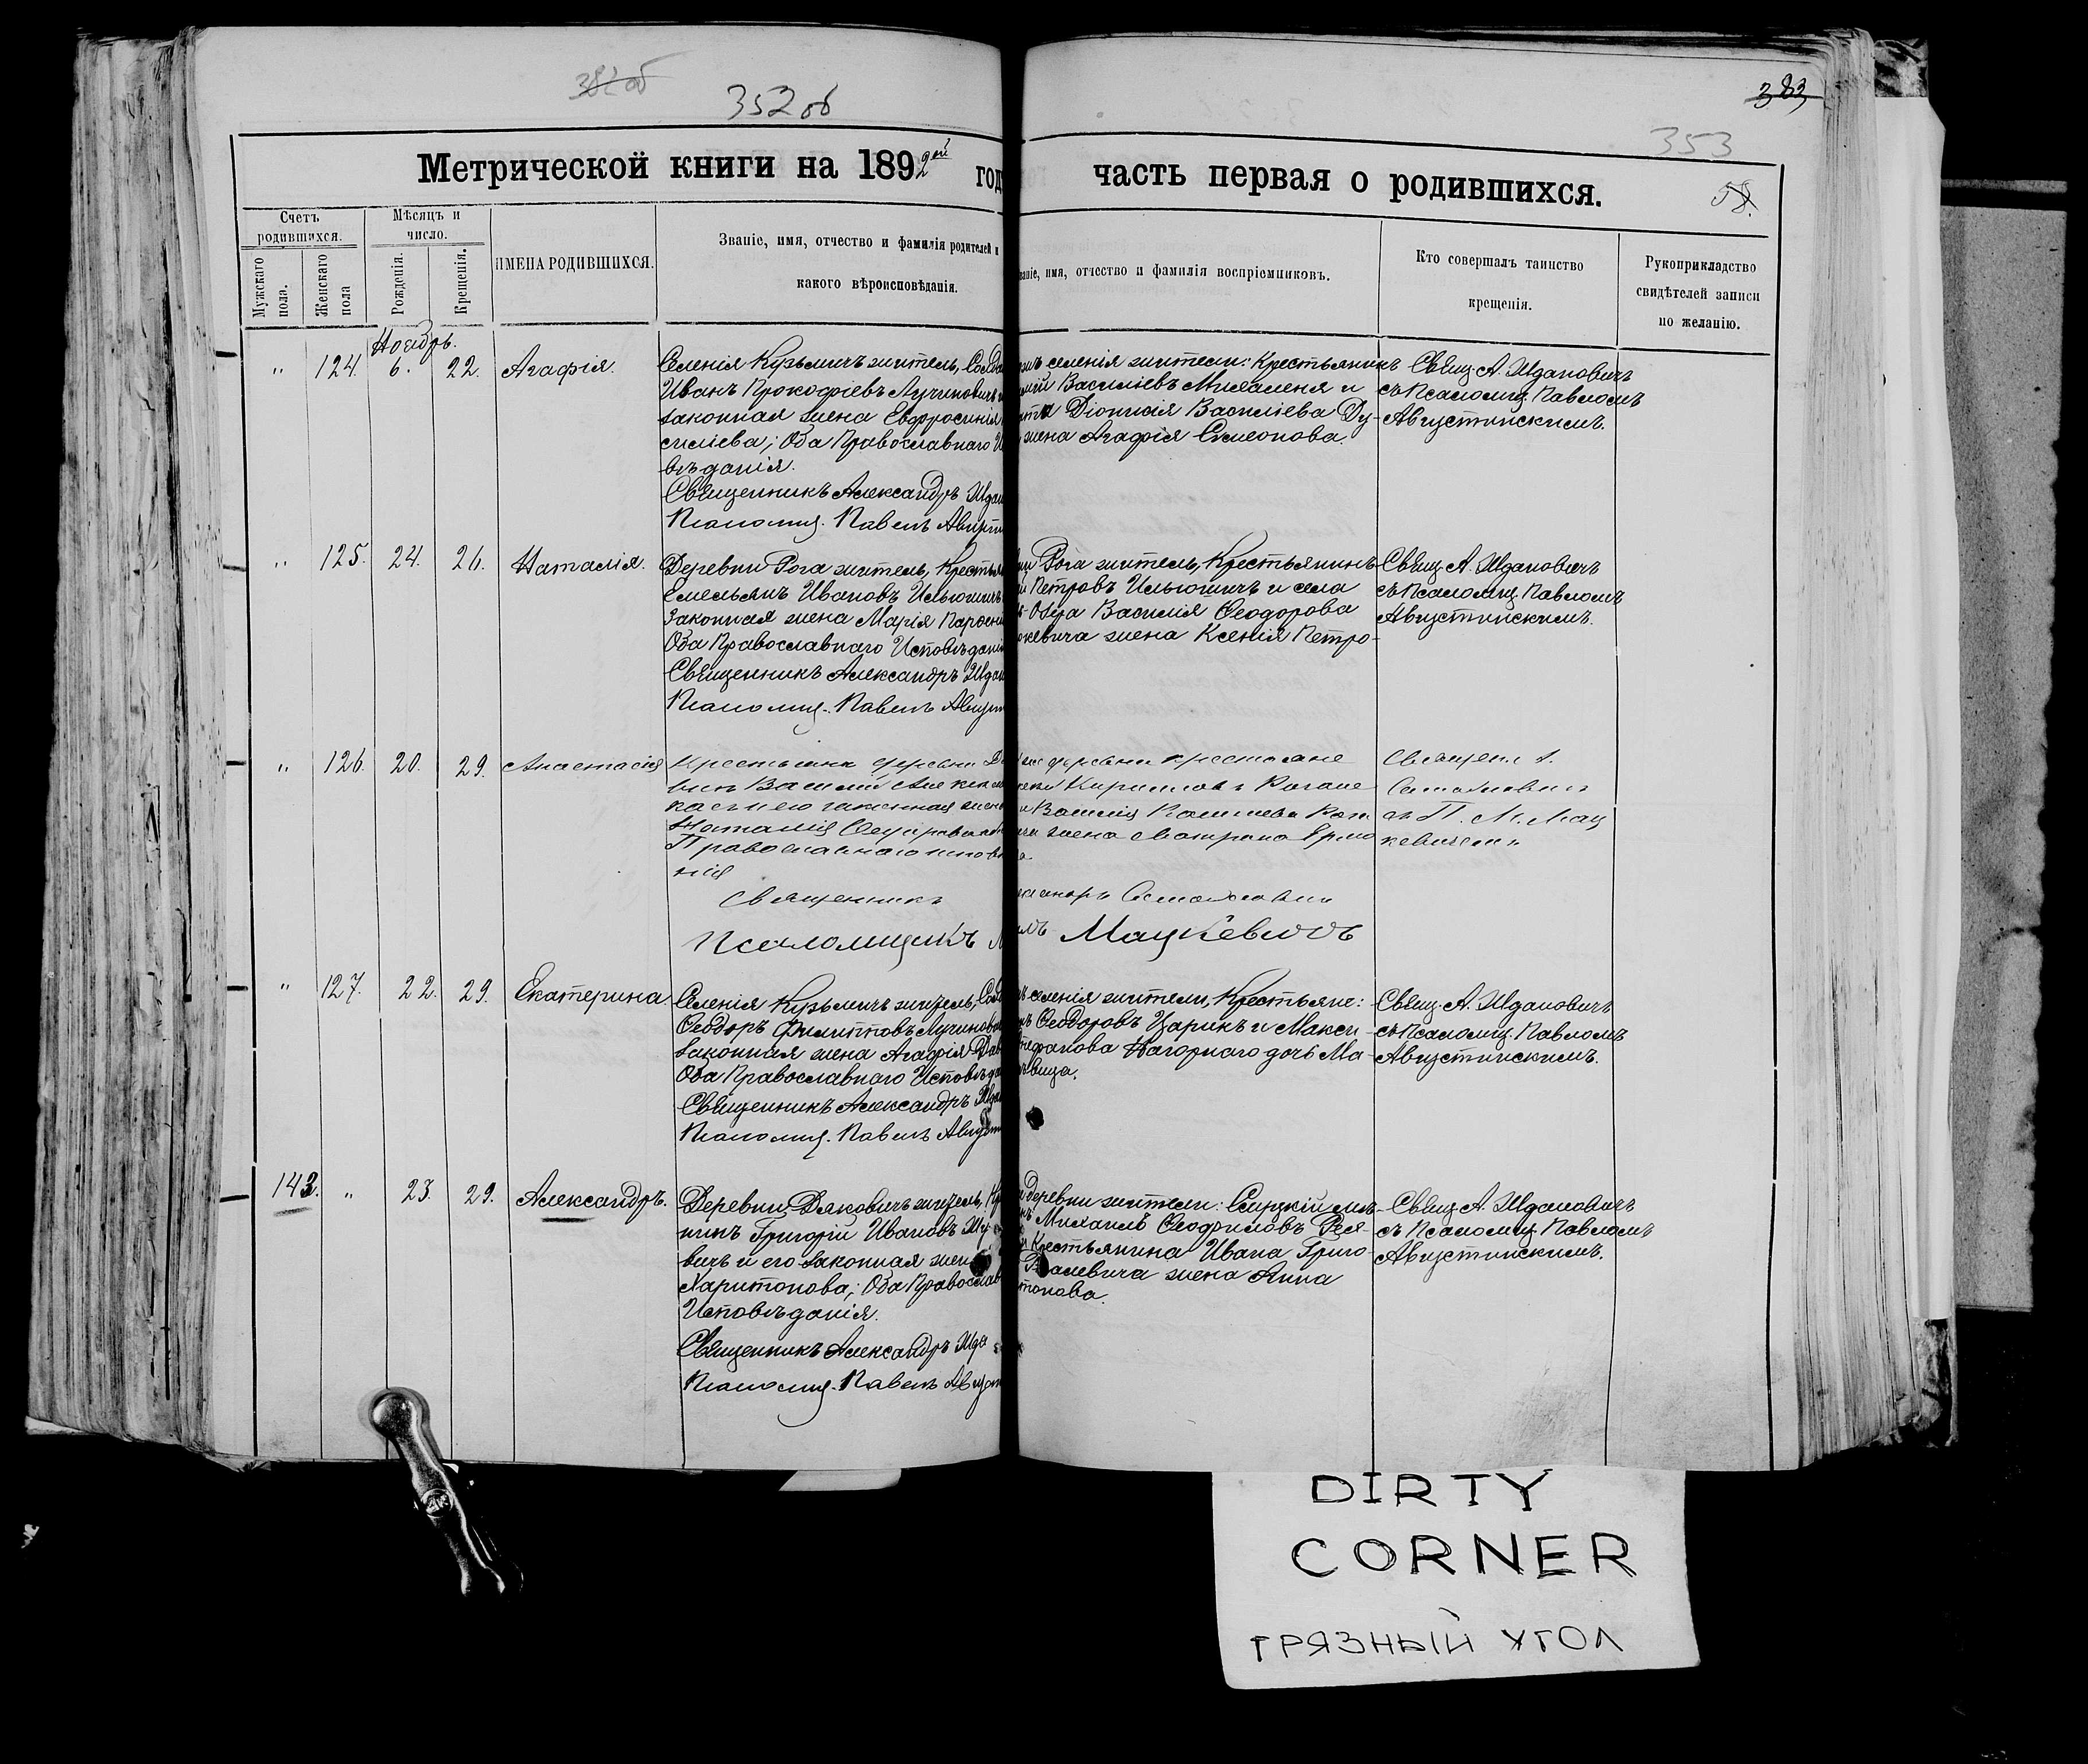 382 об
352 об
383
353
58.
Метрической книги на 1892ой год
часть первая о родившихся.
Счетъ родившихся.
Мужскаго пола.
Женскаго пола
Мѣсяцъ и число.
Рожденія.
Крещенія.
ИМЕНА РОДИВШИХСЯ.
Званіе, имя, отчество и фамилія родителей и
какого вѣроисповѣданія.
званіе, имя, отчество и фамилія воспріемниковъ.
Кто совершалъ таинство
крещенія.
Рукоприкладство
свидѣтелей записи
по желанію.
Ноябрь.
" 124. 6. 22. Агафія.
Селенія Кузьмичъ житель, Солда
Иванъ Прокофіевъ Лучиновичъ и
законная жена Евфросинія
силіева; Оба Православнаго И
вѣданія.
Священникъ Александръ Ждан
Псаломщ. Павелъ Августи
селенія жители: Крестьянинъ
Василіевъ Михаленя и
Діонисія Василіева Ду-
жена Агафія Симеонова.
Свящ. А. Ждановичъ
съ Псаломщ. Павломъ
Августинскимъ.
" 125. 24. 26. Наталія.
Деревни Рога житель, Крестья
Емельянъ Ивановъ Ильюшичъ
Законная жена Марія Парѳені
Оба Православнаго Исповѣданія
Священникъ Александръ Ждан
Псаломщ. Павелъ Август
Рога житель, Крестьянинъ
Петровъ Ильюшичъ и села
Озера Василія Ѳеодорова
кевича жена Ксенія Петро-
Свящ. А. Ждановичъ
съ Псаломщ. Павломъ
Августинскимъ.
" 126. 20. 29. Анастасія
Крестьянинъ деревни
Василій
законная жена
Наталія
Православнаго исповѣ
нія
Священникъ
Псаломщикъ
деревни крестьяне
Кирилловъ
Василія
жена Матрона Ермо
Мацкевичъ
Священ. А.
съ П. М. Мац
кевичемъ
" 127. 22. 29. Екатерина
Селенія Кузьмичъ житель, Солд
Ѳеодоръ Филипповъ Лучинови
законная жена Агафія Дав
Оба Православнаго Исповѣда
Священникъ Александръ Жда
Псаломщ. Павелъ Август
селенія жители, Крестьяне:
Ѳеодоровъ Царикъ и Макси-
Стефанова Нагорнаго дочь Ма-
вица.
Свящ. А. Ждановичъ
съ Псаломщ. Павломъ
Августинскимъ.
143. " 23. 29. Александръ.
Деревни Дяковичъ житель, Кр
нинъ Григорій Ивановъ Шу
вичъ и его законная жен
Харитонова; Оба Православ
Исповѣданія.
Священникъ Александръ Жда
Псаломщ. Павелъ Август
деревни жители: Слуцкій мѣщ-
Михаилъ
Крестьянина Ивана Григо-
жена Анна
тонова.
Свящ. А. Ждановичъ
съ Псаломщ. Павломъ
Августинскимъ.
DIRTY
CORNER
ГРЯЗНЫЙ УГОЛ